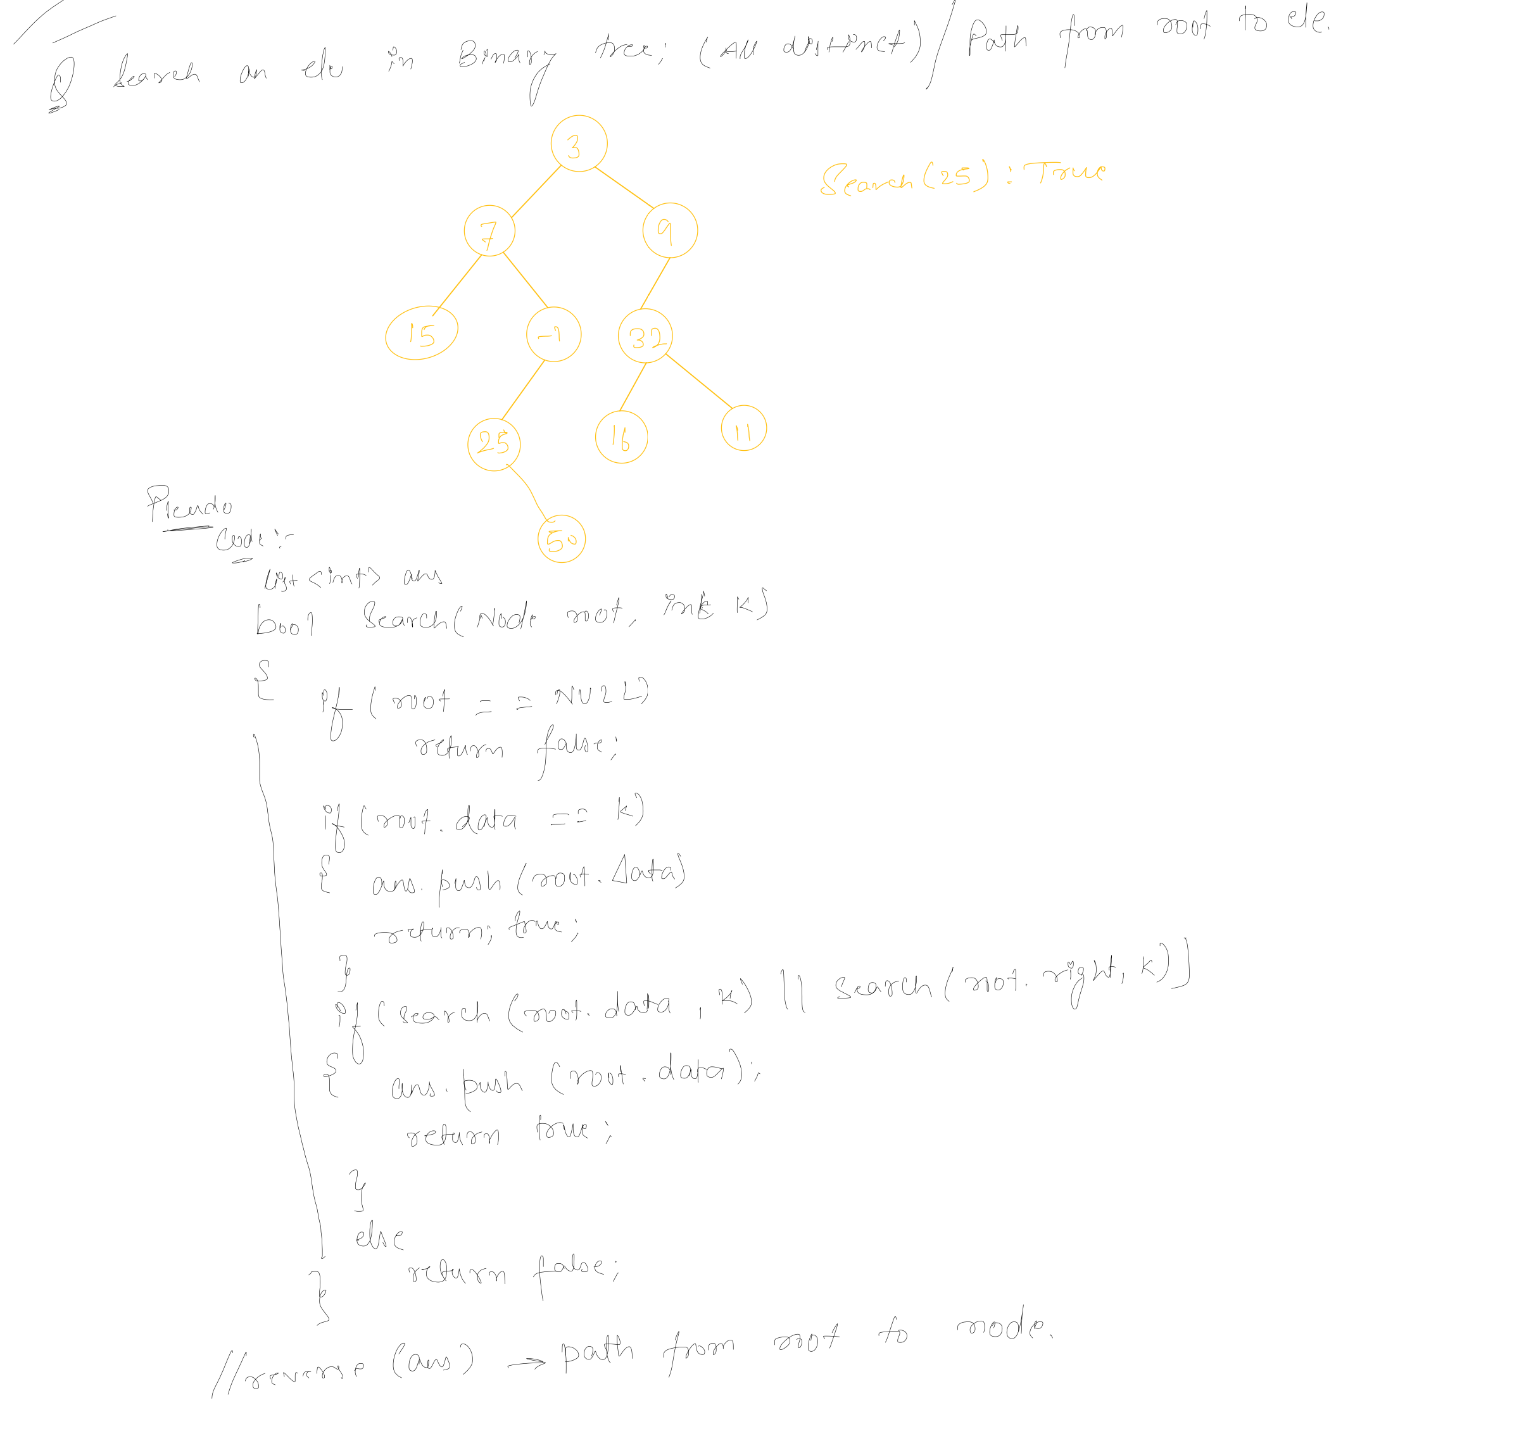 Q Search an ele in Binary tree; (All distinct) / Path from root to ele.
3
Search(25) : True
7 9
15 -1 32
25 16 11
50
Pseudo
Code :-
list <int> ans
bool Search( Node root, int K)
{
if ( root = = NULL)
return false;
if ( root. data == k)
{ ans. push ( root. data)
return; true;
}
if ( search ( root. data , k) || search ( root. right, k))
{ ans. push ( root. data);
return true ;
}
else
return false;
}
//reverse (ans) → path from root to node.